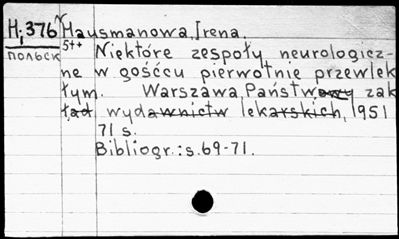 H;376 Hausmanowa, Irena.
5++ Niektóre zespoły neurologicz-
польск ne w gośćcu pierwotnie przewlek
łym. Warszawa, Państwowy zak
ład wydawnictw lekarskich, 1951
71 s.
Bibliogr.: s. 69-71.